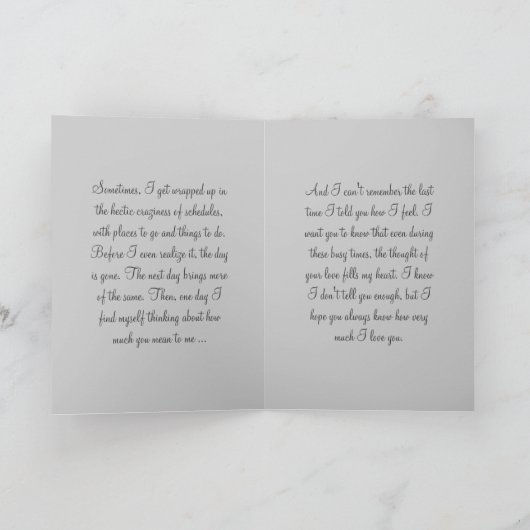 Sometimes, I get wrapped up in
the hectic craziness of schedules,
with places to go and things to do.
Before I even realize it, the day
is gone. The next day brings more
of the same. Then, one day I
find myself thinking about how
much you mean to me ...
And I can't remember the last
time I told you how I feel. I
want you to know that even during
these busy times, the thought of
your love fills my heart. I know
I don't tell you enough, but I
hope you always know how very
much I love you.